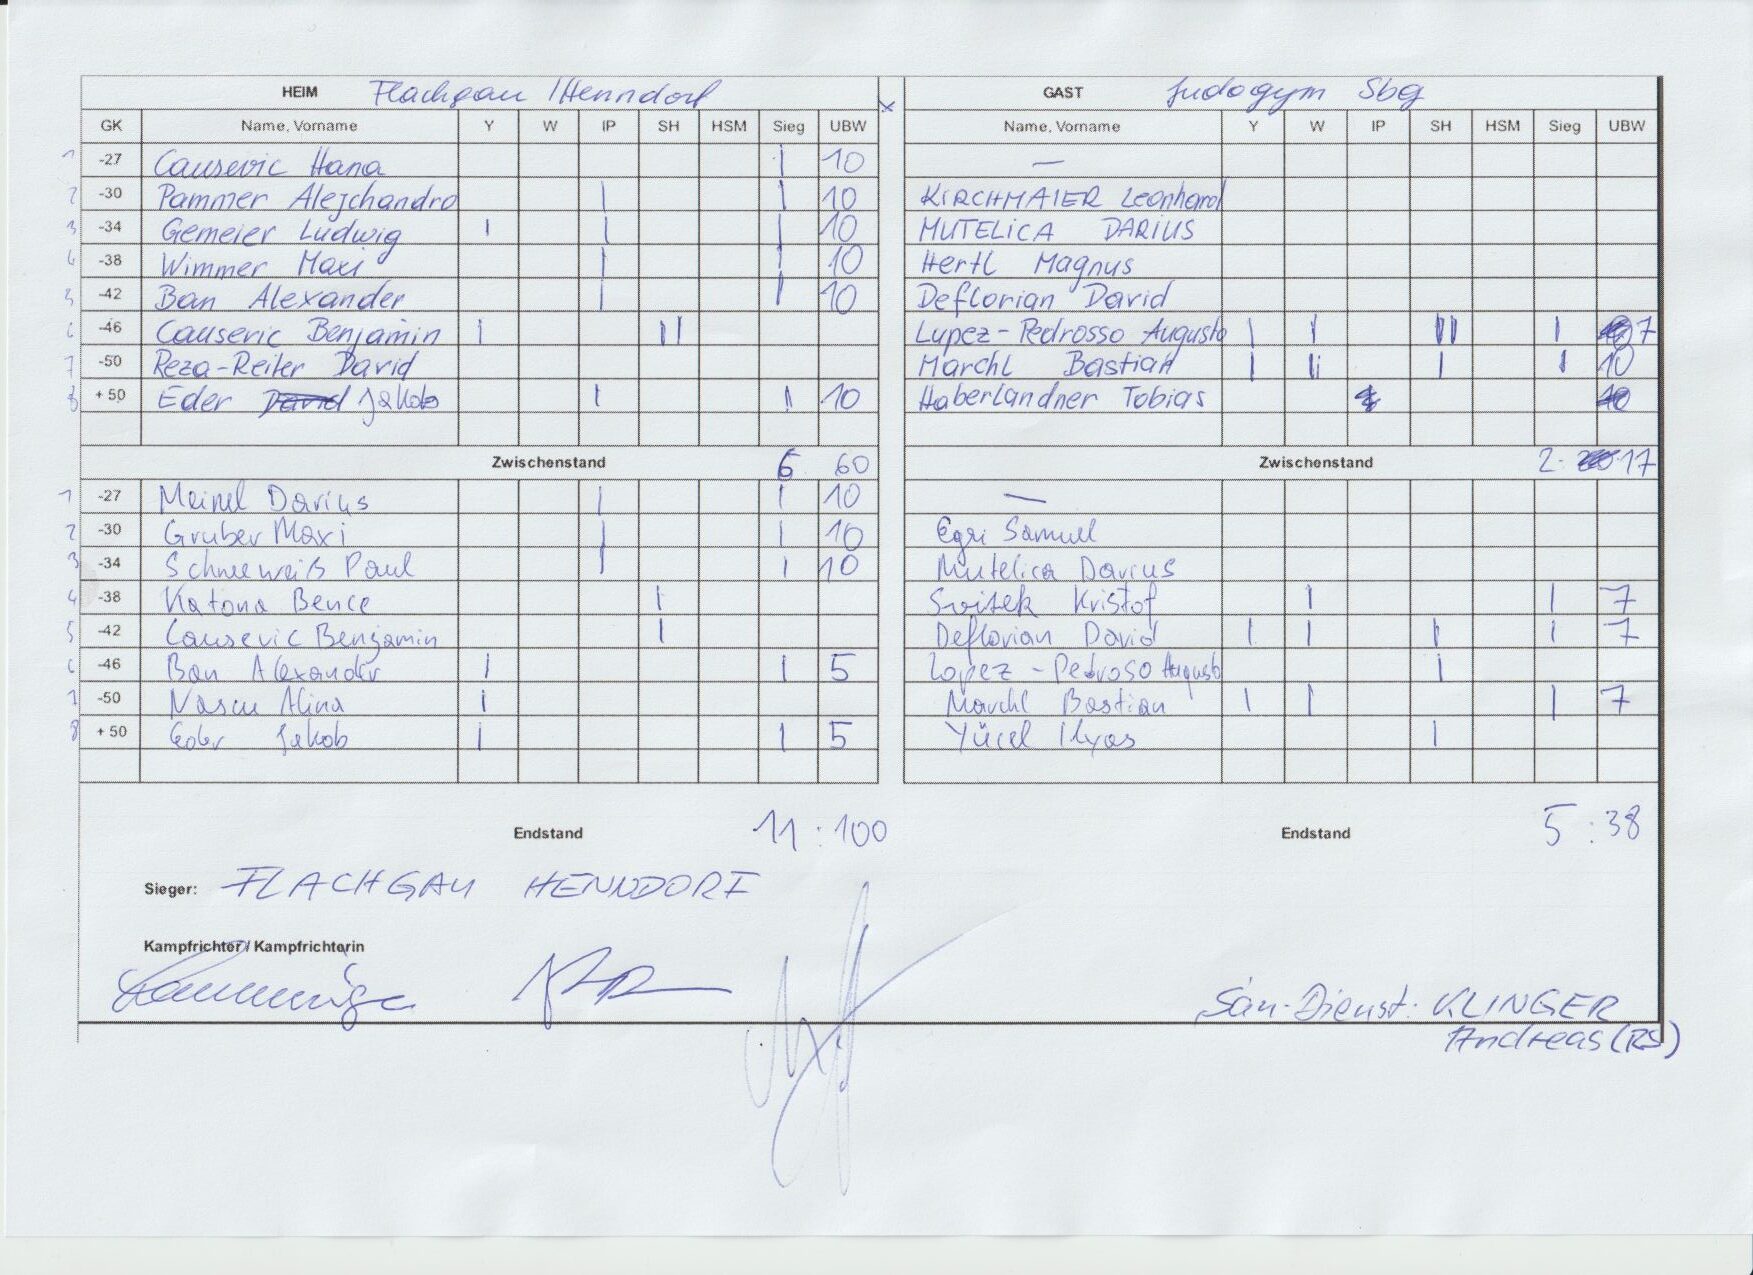 HEIM Flachgau / Henndorf GAST Judogym Sbg
GK Name, Vorname Y W IP SH HSM Sieg UBW Name, Vorname Y W IP SH HSM Sieg UBW
1 -27 Causevic Hana | 10 —
2 -30 Pammer Alejchandro | | 10 KIRCHMAIER Leonhard
3 -34 Gemeier Ludwig | | | 10 MUTELICA DARIUS
4 -38 Wimmer Maxi | | 10 Hertl Magnus
5 -42 Ban Alexander | | 10 Deflorian David
6 -46 Causevic Benjamin | || Lupez-Pedrosso Augusto | | ||| | 7
7 -50 Reza-Reiter David Marchl Bastian | || | | 10
8 +50 Eder David Jakob | | 10 Haberlandner Tobias
Zwischenstand 6 60 Zwischenstand 2 17
1 -27 Meinel Darius | | 10 —
2 -30 Gruber Maxi | | 10 Egri Samuel
3 -34 Schneeweiß Paul | | 10 Mutelica Darius
4 -38 Katona Bence | Svitek Kristof | | 7
5 -42 Causevic Benjamin | Deflorian David | | | | 7
6 -46 Ban Alexander | | 5 Lopez-Pedroso Augusto |
7 -50 Nascu Alina | Marchl Bastian | | | 7
8 +50 Eder Jakob | | 5 Yücel Ilyas |
Endstand 11 : 100 Endstand 5 : 38
Sieger: FLACHGAU HENNDORF
Kampfrichter / Kampfrichterin
San-Dienst: KLINGER
Andreas (RS)